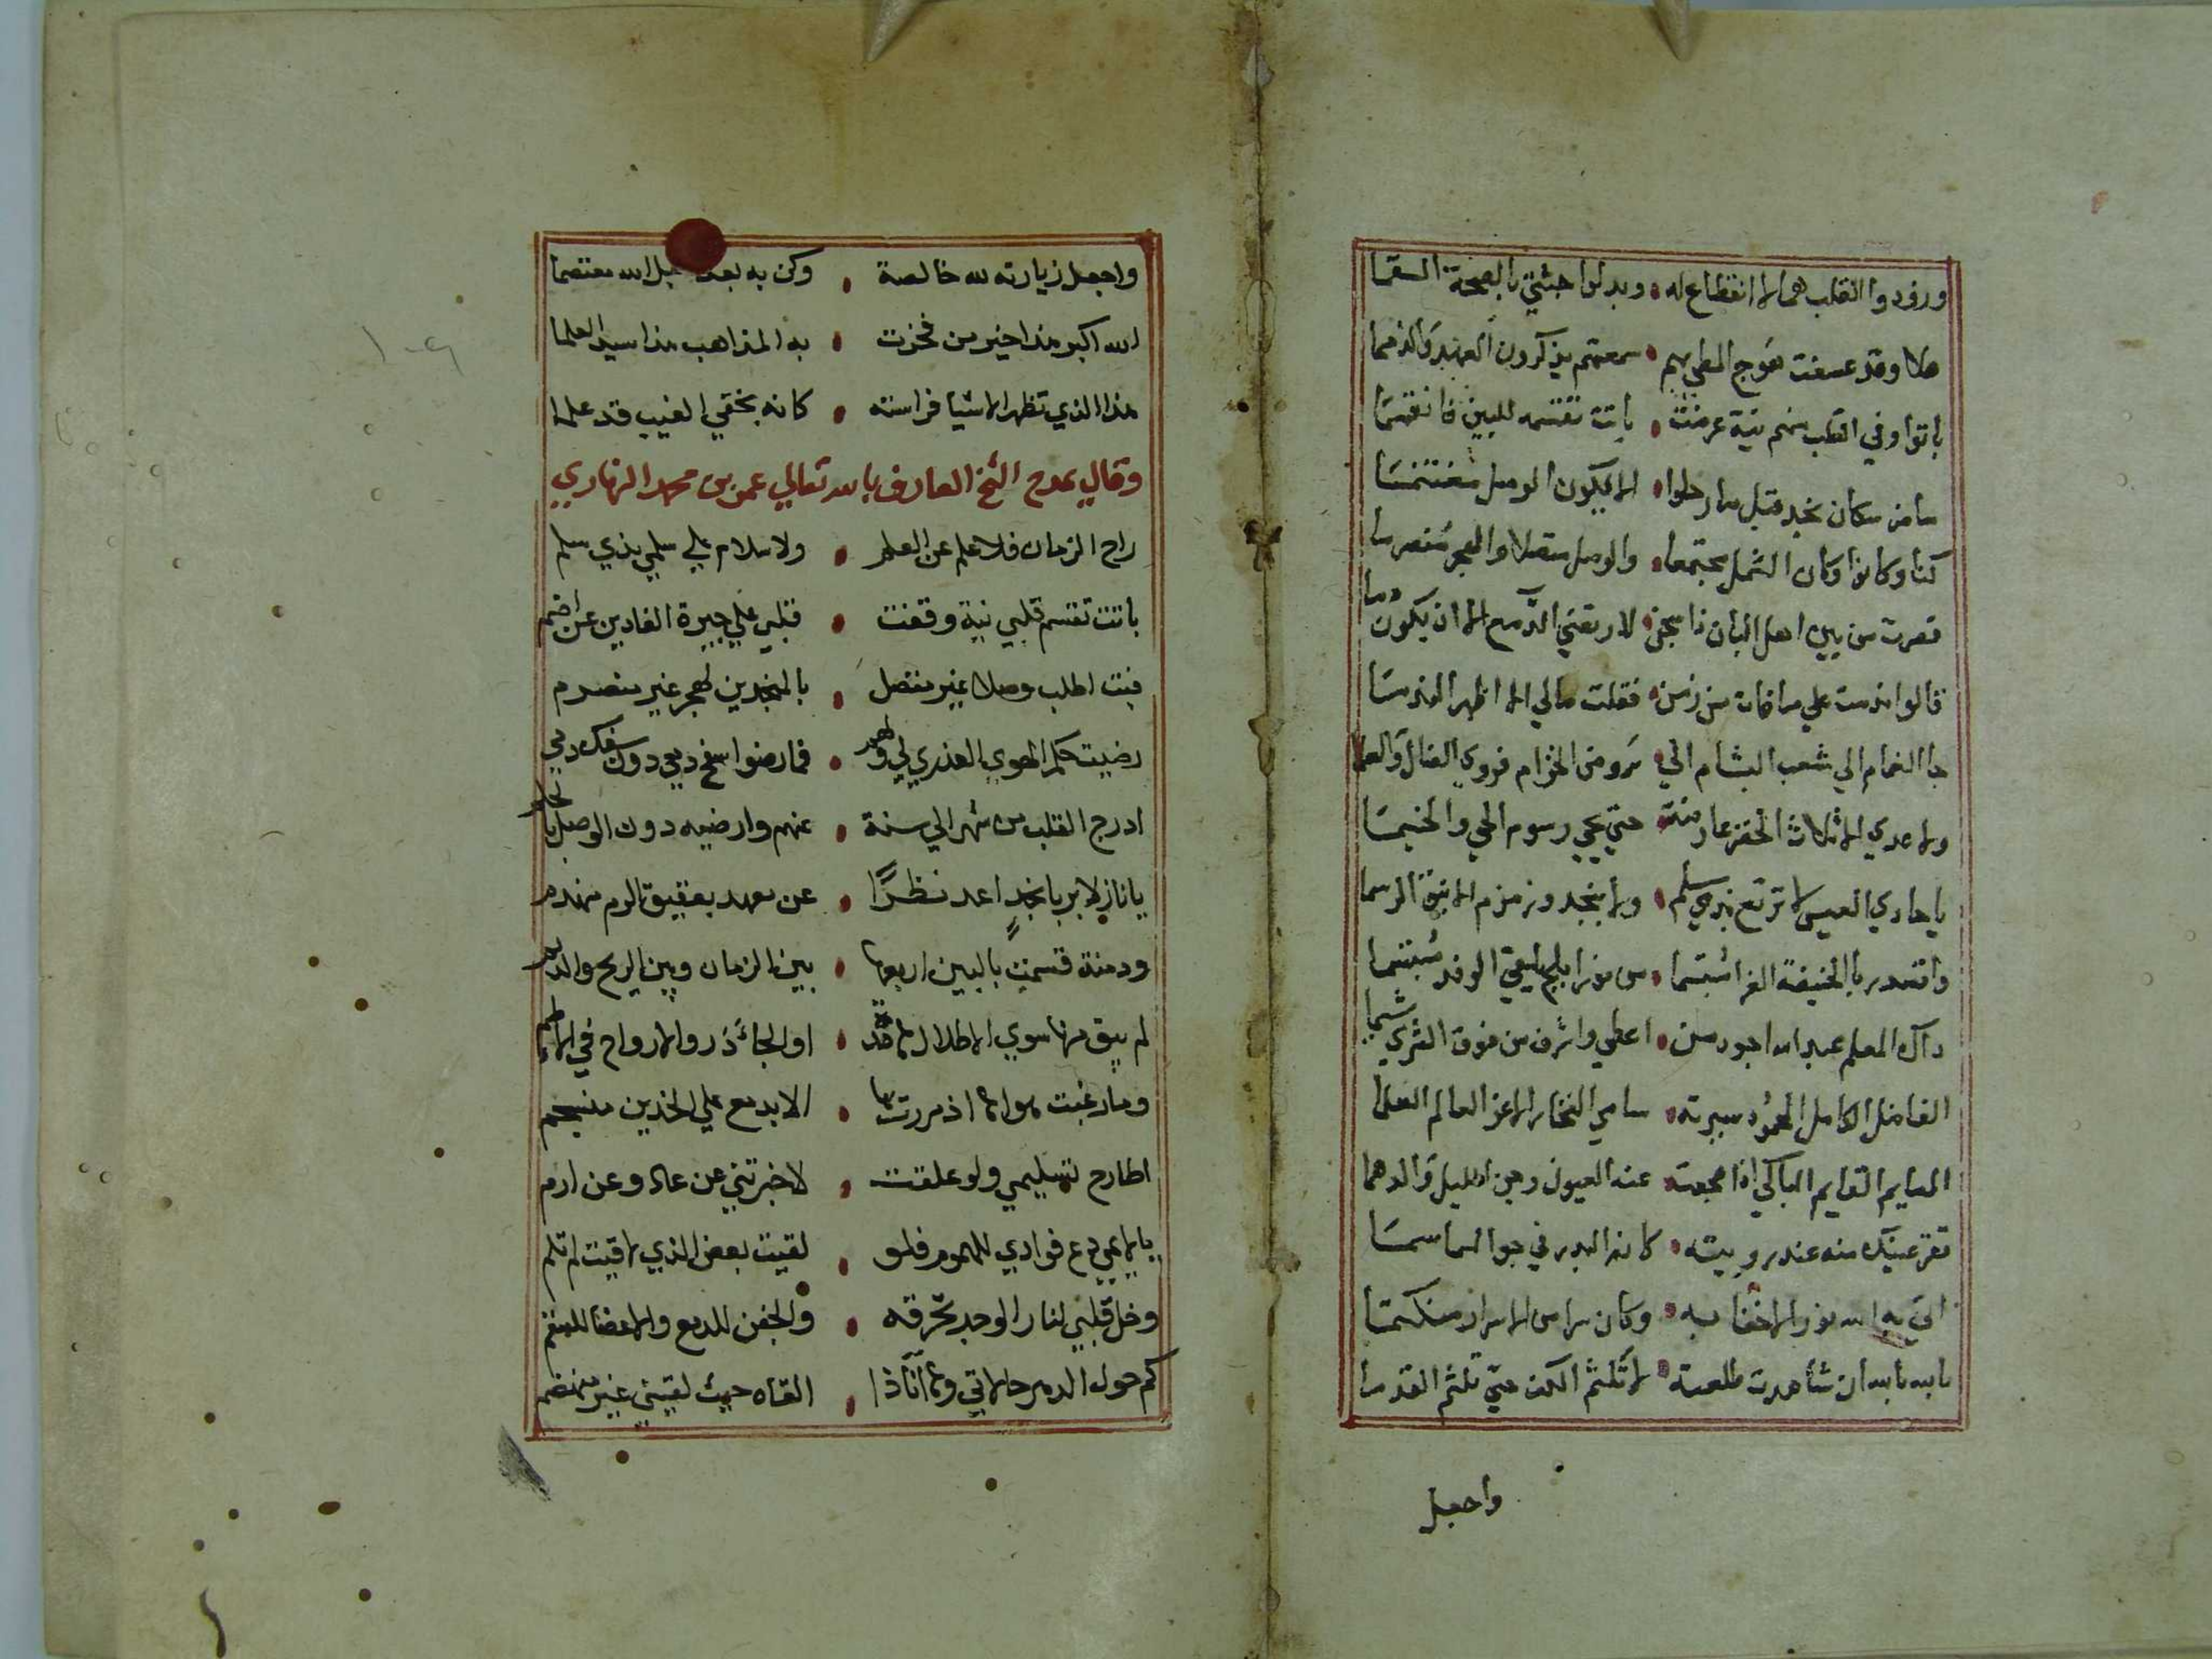 وزودوا القلب هما لا انقطاع له • وبدلوا جثتي بالصحة السقما
هلا وقد عسفت هوج المطي بهم • سمعتم يذكرون العهد والذمما
باتوا وفي القلب منهم نية عرضت • باتت تقسمه للبين فانقسما
ما ضر سكان نجد قبل ما رحلوا • الا يكون الوصل مغتنما
كنا وكانوا وكان الشمل مجتمعا • والوصل متصلا والهجر منصرما
قصرت من بين اهل البان ذا شجن • لا ارتضي الدمع الا ان يكون دما
قالوا ندمت علي ما فات من زمن • فقلت مالي لا اظهر الندما
جا الغمام الي شعب البشام الي • روض الخزام فروي الضال والعلما
ولا عدي الاثلاث الخضر عارضه • حتي يحيي رسوم الحي والخيما
يا حادي العيس لا ترتع بذي سلم • ولا بنجد وزمزم الاينق الرسما
واقصد بالخيفة الغرا مبتسما • من نور ابلج يلقي الوفد مبتسما
ذاك المعلم عبد الله اجود من • اعطي واشرف من فوق الثري شيما
الفاضل الكامل المحمود سيرته • سامي الفخار الاعز العالم العلما
الصايم القايم الباكي اذا هجعت • عنه العيون وجن الليل والدهما
تقر عينك منه عند رويته • كانه البدر في جو السما سما
اتي به الله نورا لا خفا به • وكان سرا من الاسرار منكتما
بالله بالله ان شاهدت طلعته • لا تلثم الكف حتي تلثم القدما
واجعل
واجعل زيارته لله خالصة • وكن به بعد حبل الله معتصما
الله اكبر هذا خير من فخرت • به المذاهب هذا سيد العلما
هذا الذي تظهر الاشيا فراسته • كانه بخفي الغيب قد علما
وقال يمدح الشيخ العارف بالله تعالي عمر بن محمد النهاري
راح الزمان فلا علم عن العلم • ولا سلام علي سلمي بذي سلم
باتت تقسم قلبي نية وقفت • قبلي علي جيرة الغادين عن اضم
فبت اطلب وصلا غير متصل • بالمنجدين لهجر غير منصرم
رضيت حكم الهوي العذري لي ولهم • فما رضوا سفح دمعي دون سفك دمي
ادرج القلب من شهر الي سنة • عنهم وارضيه دون الوصل بالحلم
يا نازلا بربا نجد اعد نظرا • عن معهد بعقيق الرم منهدم
ودمنة قسمت بالبين اربعها • بين الزمان وبين الريح والديم
لم يبق منها سوي الاطلال هامدة • او الجاذر والارواح في الاطم
وما رغبت هوانا اذ مررت بها • الا بدمع علي الخدين منسجم
اطارح تسليمي ولو علقت • لاخبرتني عن عاد وعن ارم
يا لايمي دع فوادي للهموم فلو • لقيت بعض الذي لاقيت لم تلم
وخل قلبي لنار الوجد تحرقه • والجفن للدمع والاعضا للسقم
كم حول الدهر حالاتي وها انا ذا • القاه حيث لقيني غير منهضم